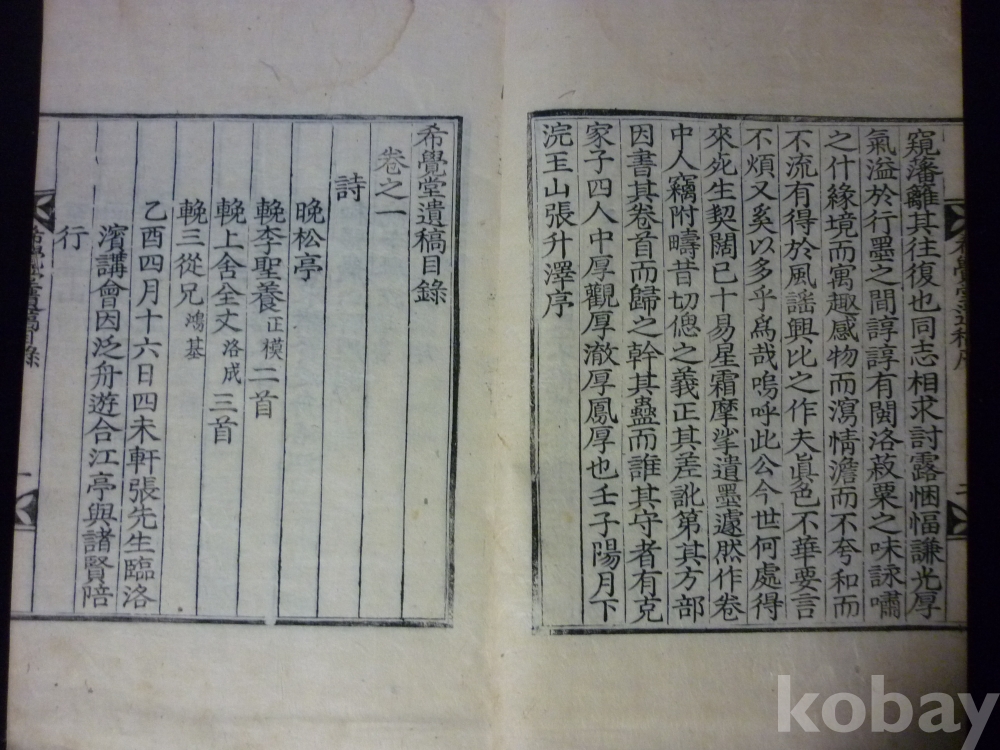 窺藩籬其往復也同志相求討露悃愊謙光厚
氣溢於行墨之間諄諄有閩洛菽粟之味詠嘯
之什緣境而寓趣感物而瀉情澹而不夸和而
不流有得於風謠興比之作夫眞色不華要言
不煩又奚以多乎爲哉嗚呼此公今世何處得
來死生契闊已十易星霜摩挲遺墨遽然作卷
中人竊附疇昔切偲之義正其差訛第其方部
因書其卷首而歸之幹其蠱而誰其守者有克
家子四人中厚觀厚澈厚鳳厚也壬子陽月下
浣玉山張升澤序
希覺堂遺稿目錄
卷之一
詩
晚松亭
輓李聖養正模二首
輓上舍全丈洛成三首
輓三從兄鴻基
乙酉四月十六日四未軒張先生臨洛
濱講會因泛舟遊合江亭與諸賢陪
行
一
kobay